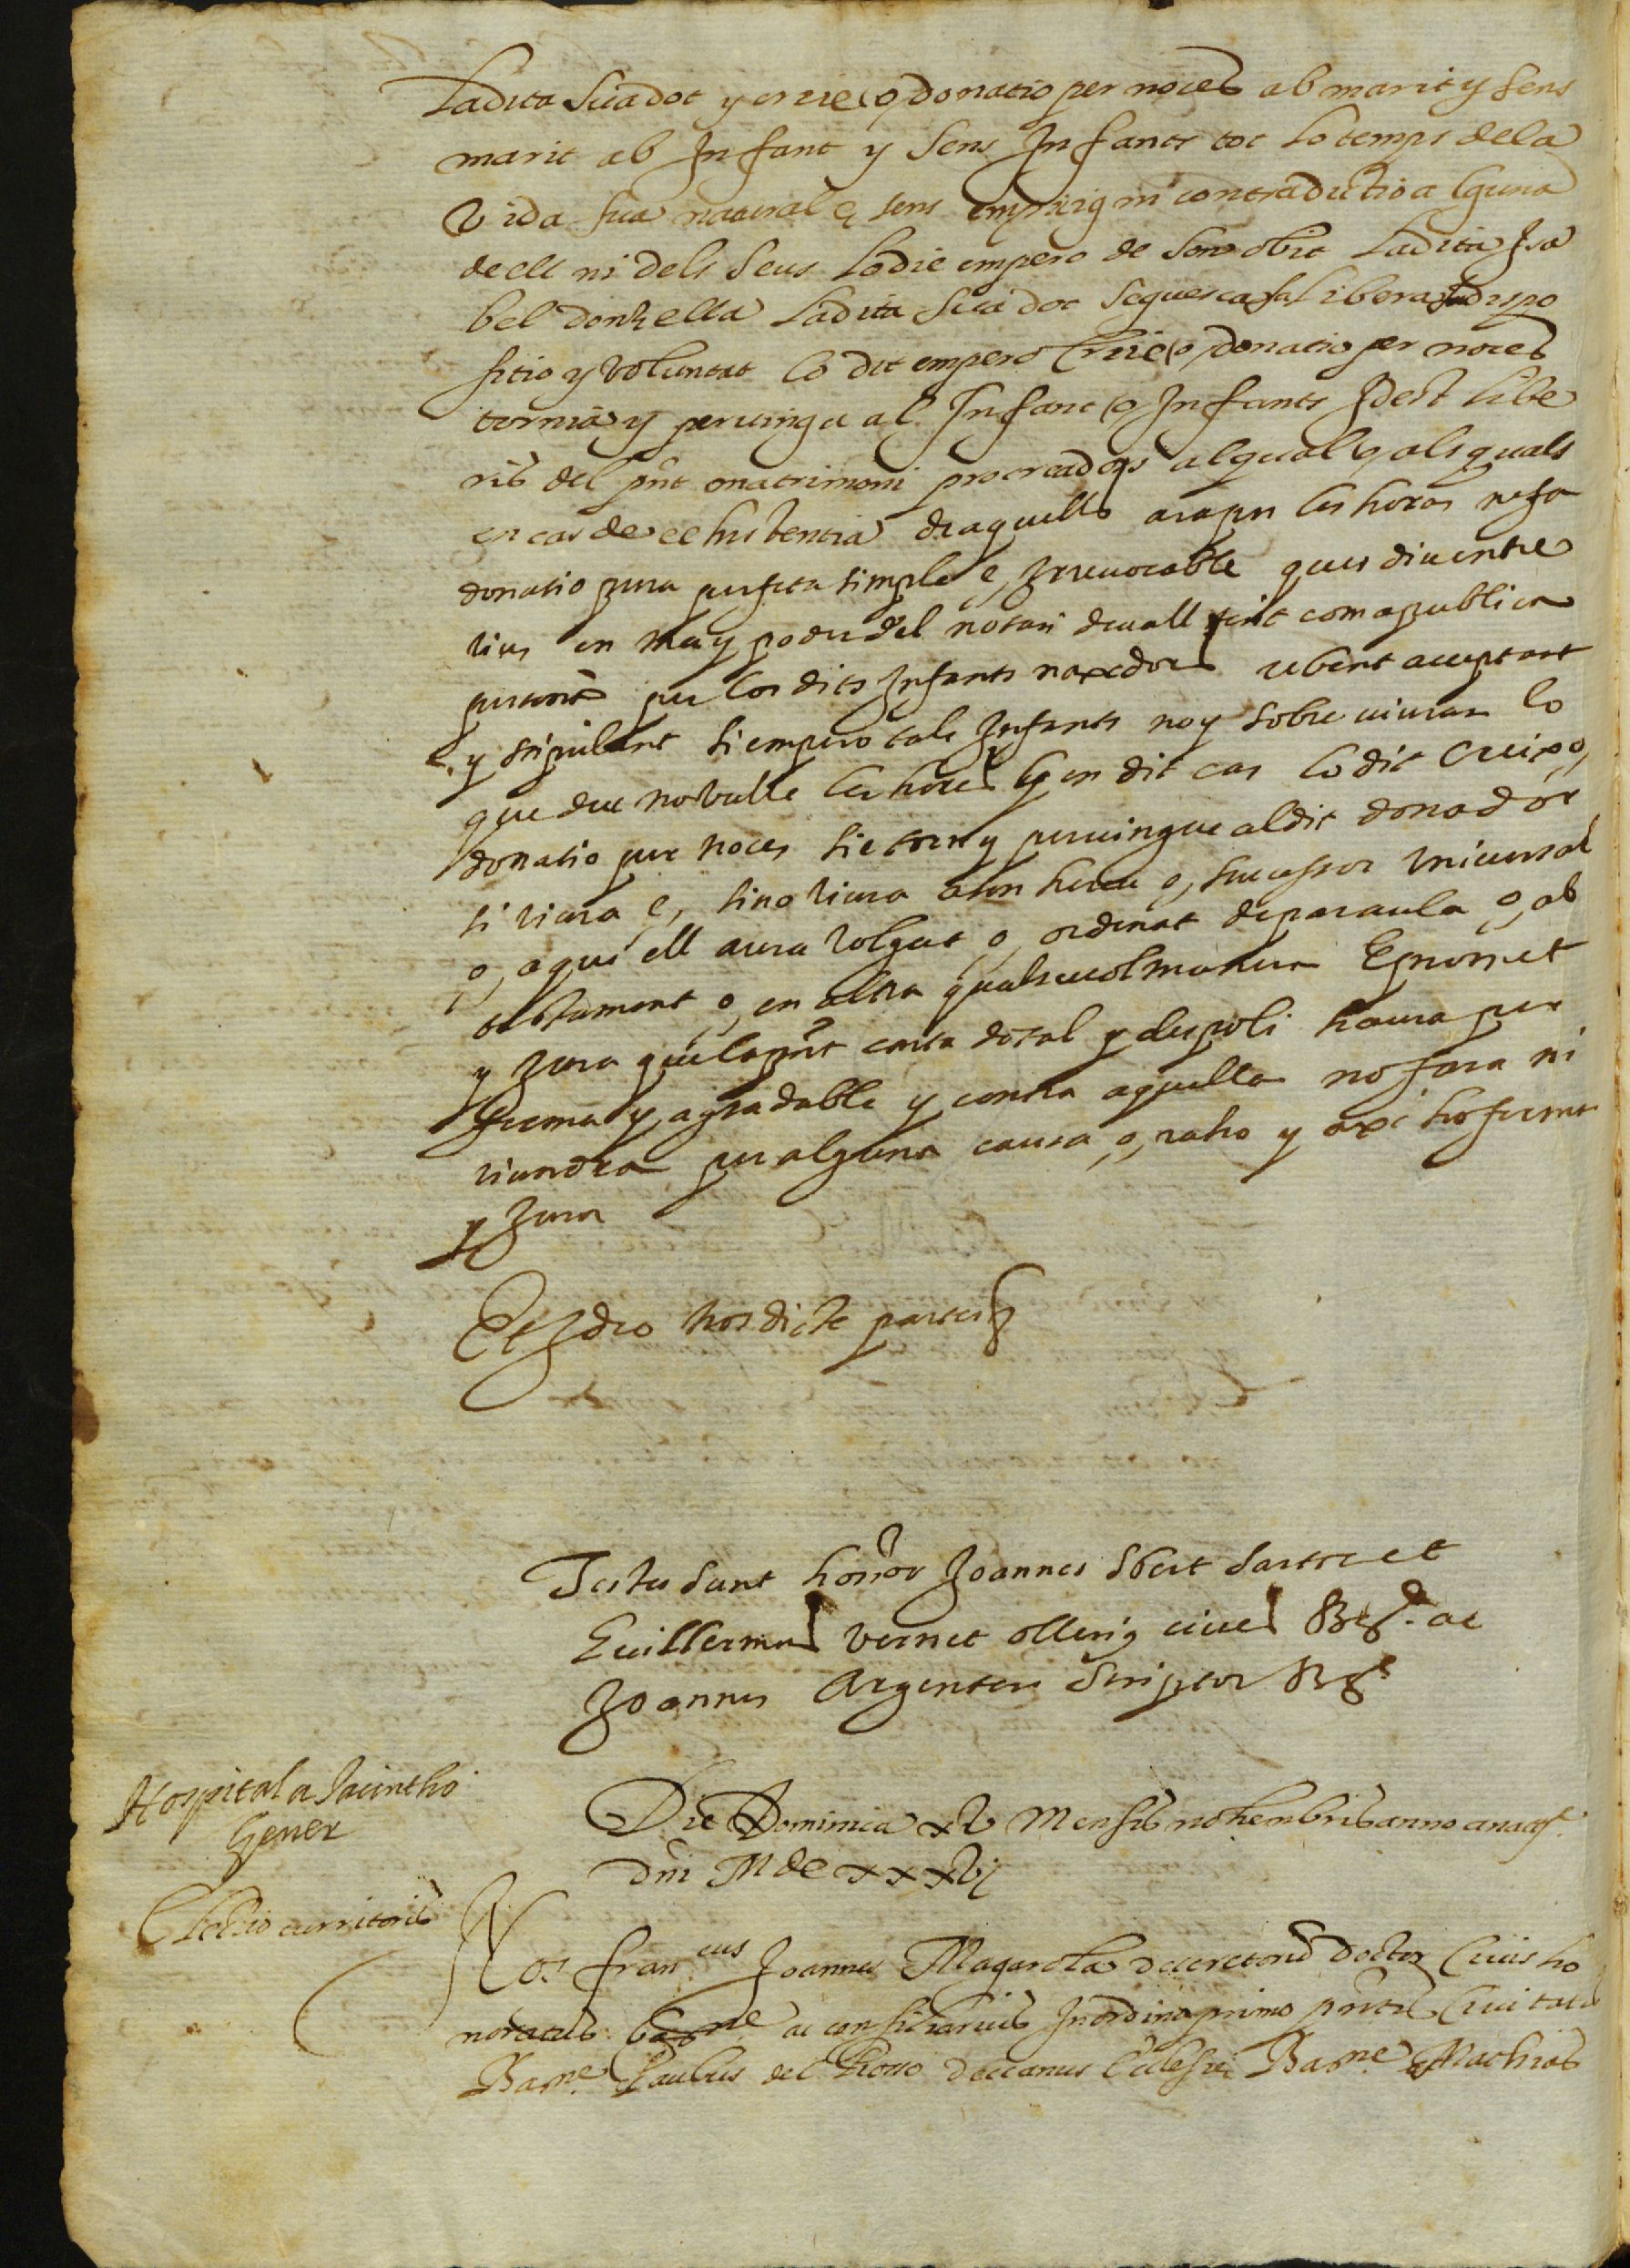 Ladita sua dot y creix o, donatio per noces ab marit y sens
marit ab Infant y sens Infants tot lo temps dela
Vida sua natural e, sens empaig ni contradictio alguna
de ell ni dels seus Lo die empero de son obit Ladita Isa
bel donzella Ladita sua dot seguesca sa Libera dispo
sitio y voluntat lo dit empero Creix o, donatio per noces
tornia y pervinga al Infant o, Infants Idest libe
ris del pnt matrimoni procreadors al qual o, als quals
en cas de exhistentia de aquells ara per les horas ne fa
donatio pura perfeta simple e, Irrevocable ques diu entre
vius en ma y poder del notari devall scrit com a publica
persona per los dits Infants naxedors rebent acceptant
e, y stipulant si empero tals Infants noy sobreviuran lo
que deu no vulle les hores y en dit cas lo dit Creix o,
donatio per noces sie torn y pervingue al dit donador
si viura e, sino viura a son hereu o, successor universal
o, aqui ell aura volgut o, ordinat de paraula o, ab
testament o, en altra qualsevol manera E promet
y jura que la pnt carta dotal y despoli haura per
ferma y agradable y contra aquella no fara ni
viendra per alguna causa o, raho y axi ho ferma
y jura
Et Ideo nos dicte partes
Testes sunt honor Joannes Sbert sartre et
Guillermus Vernet ollerius cives Bar. ac
Joannes Argenter scriptor Bar.
Hospital a Jacintho
Gener
Die Dominica xv Mensis nohembris anno a nat.
Dni M dc xxxvi
Electio curritoris
Nos Fran.cus Joannes Magarola decretorum doctor Civis ho
noratus Barne ac consiliarius In ordine primo pntis Civitatis
Barne. Paulus del Rosso deccanus Ecclesie Barne Mathias